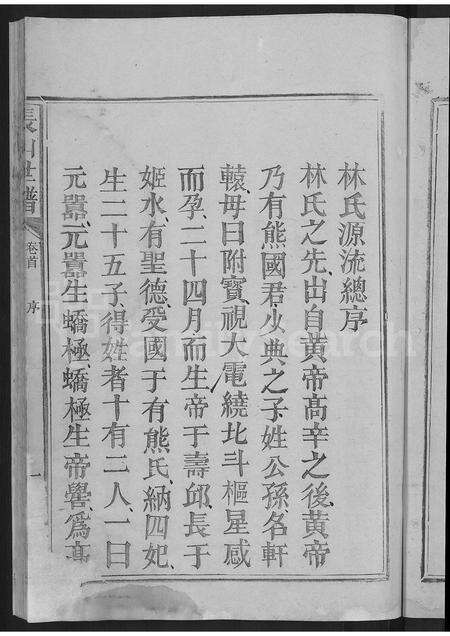 林氏源流總序
林氏之先、出自黃帝高辛之後、黃帝
乃有熊國君少典之子、姓公孫名軒
轅、母曰附寶、視大電繞北斗樞星感
而孕、二十四月而生帝于壽邱、長于
姬水、有聖德、受國于有熊氏、納四妃、
生二十五子、得姓者十有二人、一曰
元囂、元囂生蟜極、蟜極生帝嚳、為高
世譜
卷首
序
一